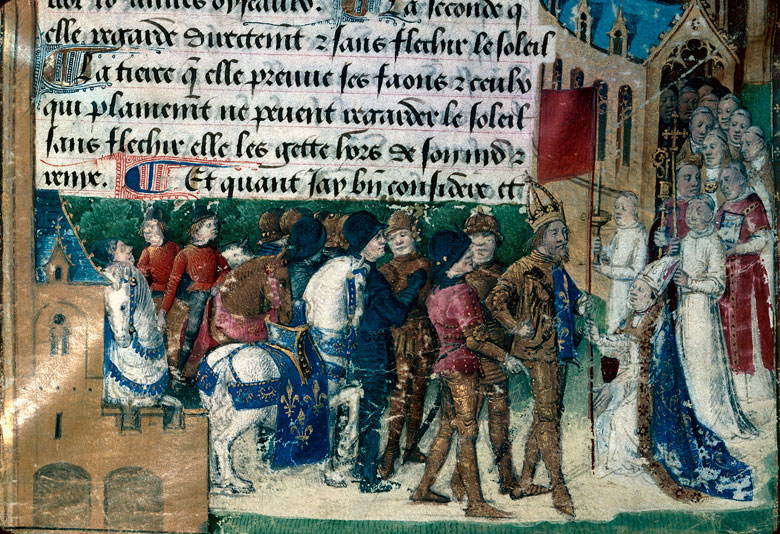 elle regarde directemt ⁊ sans flechir le soleil
La tierce q̃ elle preuve ses faons ⁊ ceulx
qui plainemt ne peuent regarder le soleil
sans flechir elle les gette hors de son nid ⁊
renye. Et quant Jay bn̄ considere et